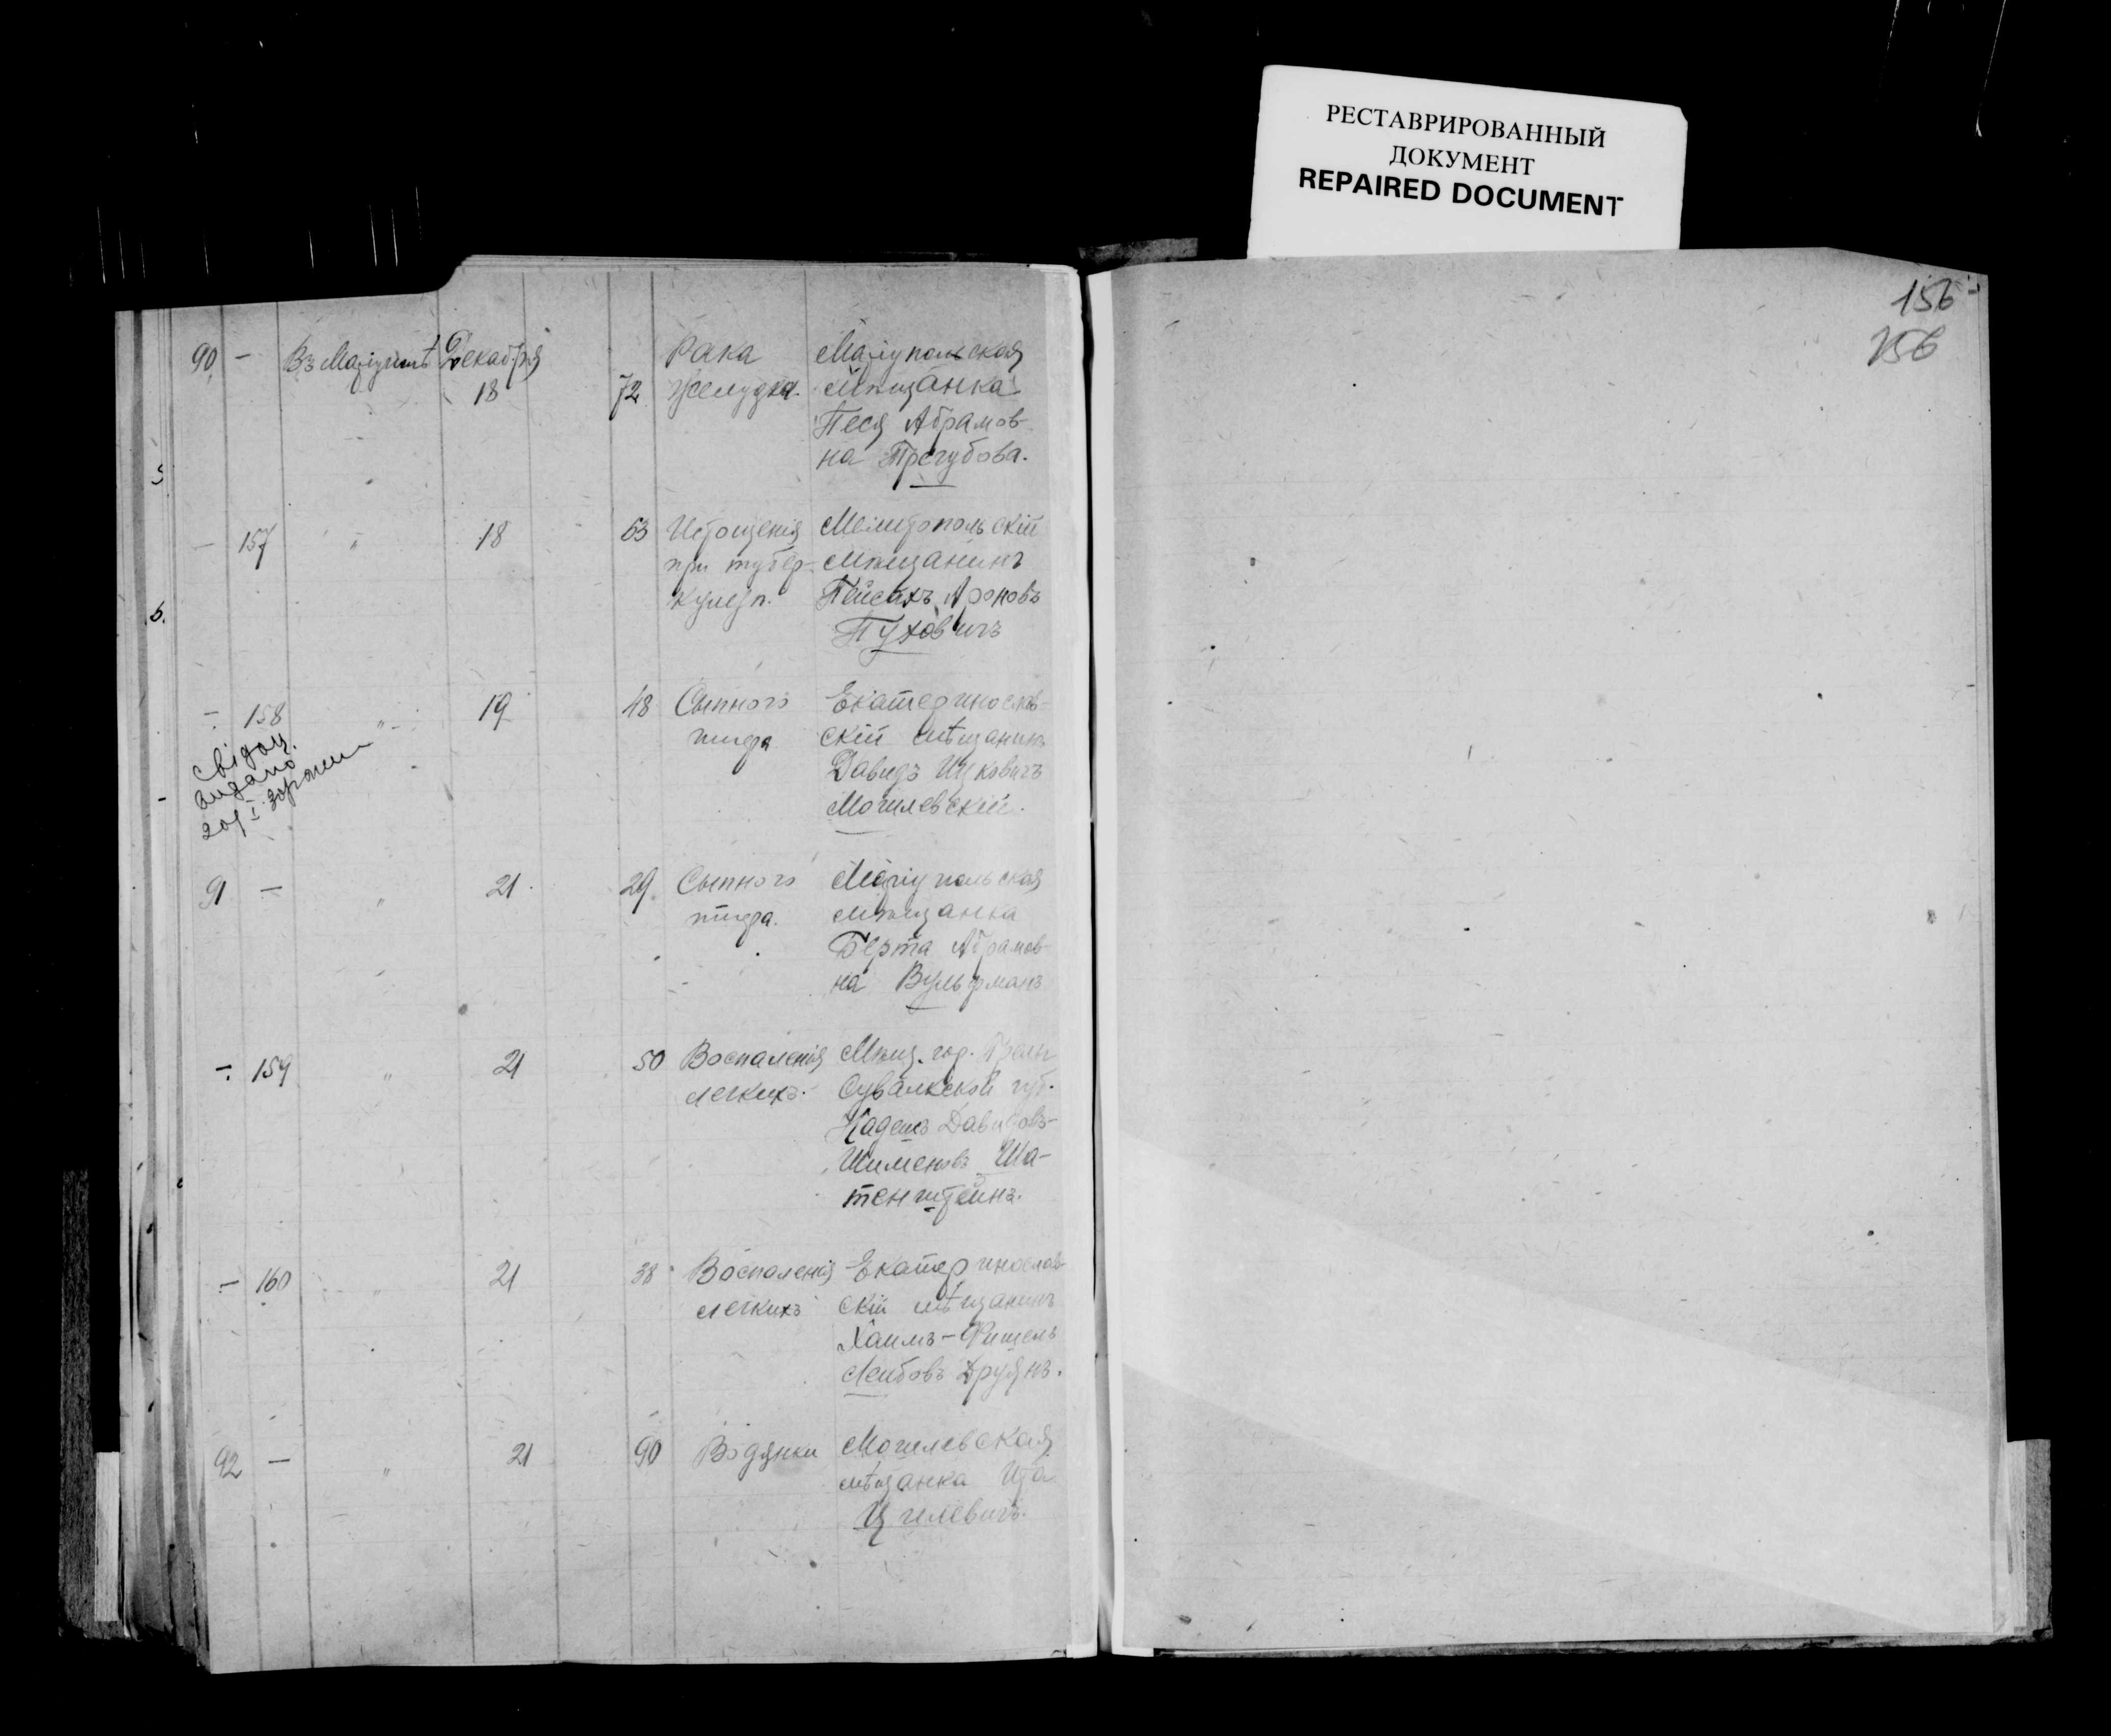 РЕСТАВРИРОВАННЫЙ
ДОКУМЕНТ
REPAIRED DOCUMENT
156
156
90 — Въ Маріуполѣ Декабря 18 72 Рака желудка. Маріупольская
мѣщанка
Песя Абрамов-
на Трегубова.
— 157 " 18 63 Истощенія Мелитопольскій
при тубер- мѣщанинъ
Пейсахъ Ароновъ
Пуховичъ
— 158 " 19 48 Сыпного Екатеринослав-
тифа скій мѣщанинъ
Давидъ Ицковичъ
Могилевскій.
свідоц.
видано
91 — " 21 29 Сыпного Маріупольская
тифа. мѣщанка
Берта Абрамов-
на Вульфманъ
— 159 " 21 50 Воспаленія Мѣщ. гор.
легкихъ. Сувалкской губ.
Давидовъ-
Шименовъ Ша-
тенштейнъ.
— 160 " 21 38 Воспаленія Екатеринослав-
легкихъ скій мѣщанинъ
Хаимъ-Фишель
Лейбовъ Друянъ.
92 — " 21 90 Водянки Могилевская
мѣщанка Ита